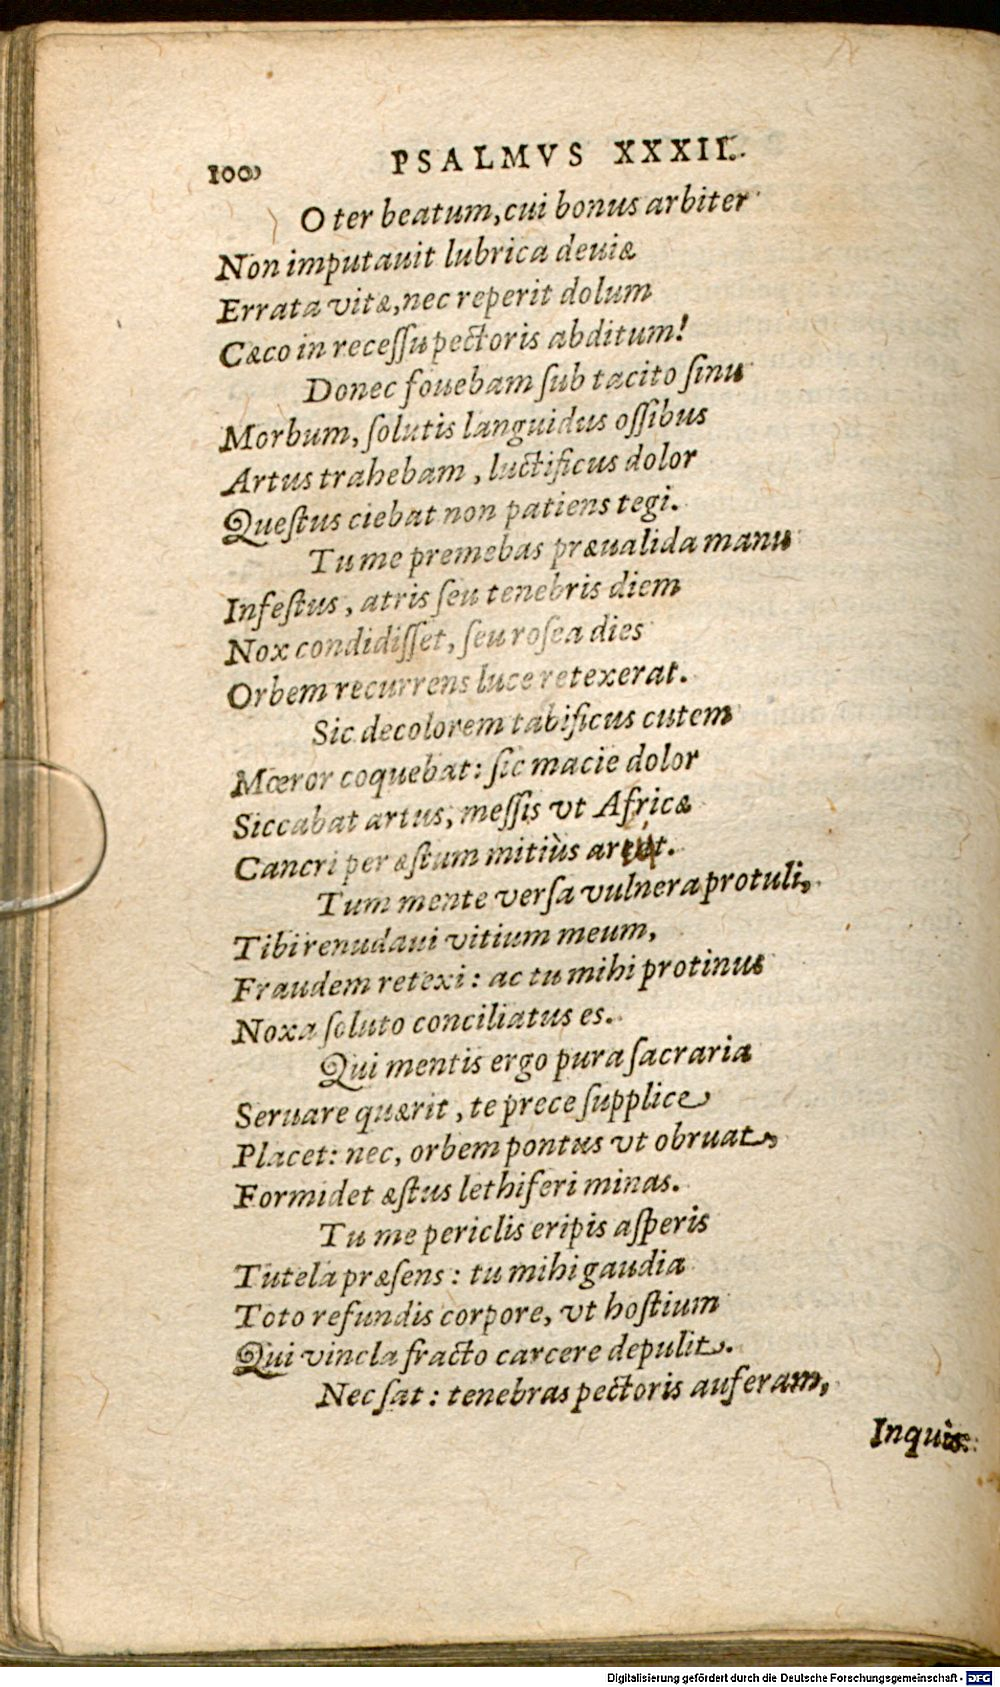 100
PSALMVS XXXII.
O ter beatum, cui bonus arbiter
Non imputauit lubrica deuiæ
Errata vitæ, nec reperit dolum
Cæco in recessu pectoris abditum!
Donec fouebam sub tacito sinu
Morbum, solutis languidus ossibus
Artus trahebam, luctificus dolor
Questus ciebat non patiens tegi.
Tu me premebas præualida manu
Infestus, atris seu tenebris diem
Nox condidisset, seu rosea dies
Orbem recurrens luce retexerat.
Sic decolorem tabificus cutem
Mœror coquebat: sic macie dolor
Siccabat artus, messis vt Africæ
Cancri per æstum mitiùs
Tum mente versa vulnera protuli,
Tibi renudaui vitium meum,
Fraudem retexi: ac tu mihi protinus
Noxa soluto conciliatus es.
Qui mentis ergo pura sacraria
Seruare quærit, te prece supplice
Placet: nec, orbem pontus vt obruat,
Formidet æstus lethiferi minas.
Tu me periclis eripis asperis
Tutela præsens: tu mihi gaudia
Toto refundis corpore, vt hostium
Qui vincla fracto carcere depulit.
Nec sat: tenebras pectoris auferam,
Inquis:
Digitalisierung gefördert durch die Deutsche Forschungsgemeinschaft - DFG